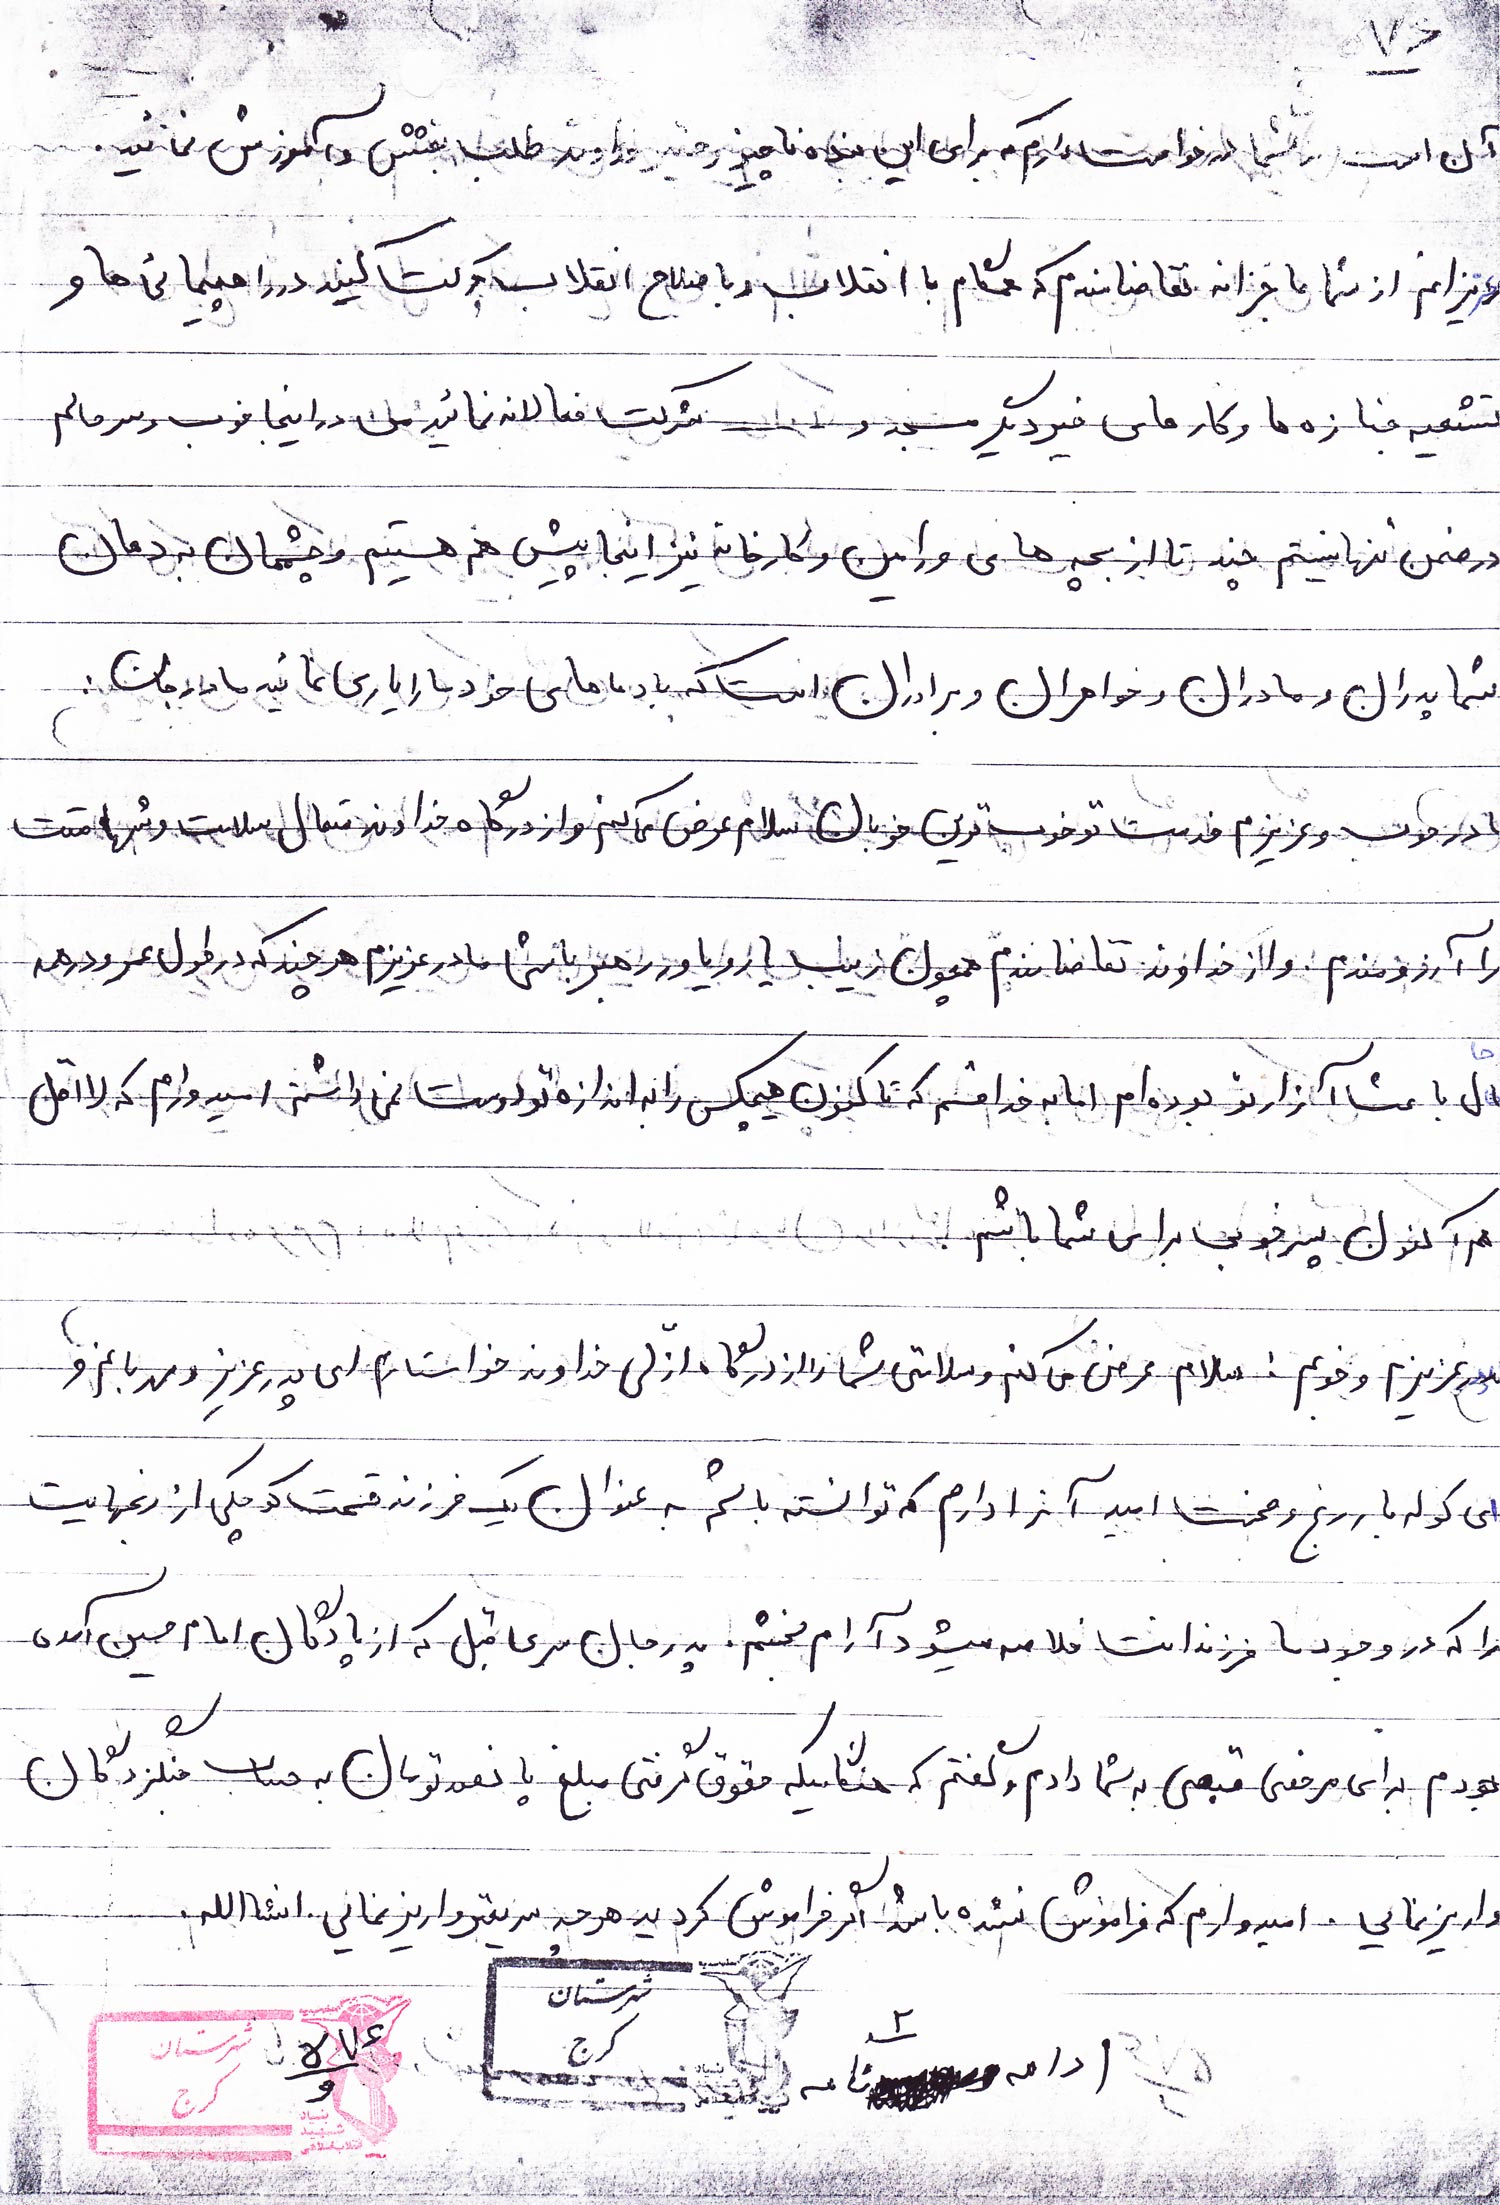 ۵۷۶
آن است از شما درخواست دارم که برای این بنده ناچیز و حقیر خداوند طلب بخشش و آموزش نمائید.
عزیزانم از شما عاجزانه تقاضامندم که همگام با انقلاب و با صلاح انقلاب حرکت کنید در راهپیمائی ها و
تشعیه جنازه ها و کارهای خیر دیگر مسجد و شرکت فعالانه نمائید من در اینجا خوب و سرحالم
در ضمن تنها نیستم چند تا از بچه های ورامین و کارخانه نیز اینجا پیش هم هستیم و چشممان به دعای
شما پدران و مادران و خواهران و برادران است که با دعاهای خود ما را یاری نمائید مادر جان:
مادر خوب و عزیزم خدمت تو خوب ترین خوبان سلام عرض می کنم و از درگاه خداوند متعال سلامت و شهامتت
را آرزومندم. و از خداوند تقاضامندم همچون زینب یار و یاور رهبر باشی مادر عزیزم هر چند که در طول عمر و در همه
حال باعث آزار تو بوده ام اما به خدا قسم که تا کنون هیچکس را به اندازه تو دوست نمی داشتم امیدوارم که لااقل
هم اکنون پسر خوبی برای شما باشم.
پدر عزیزم و خوبم: سلام عرض می کنم و سلامتی شما را از درگاه ازلی خداوند خواستارم ای پدر عزیز و مهربانم و
ای کوله بار رنج و محنت امید آنرا دارم که توانسته باشم به عنوان یک فرزند قسمت کوچکی از رنجهایت
را که در وجود ما فرزندانت خلاصه میشود آرام بخشم. پدر جان سری قبل که از پادگان امام حسین آمده
بودم برای مرخصی قبضی به شما دادم و گفتم که هنگامیکه حقوق گرفتی مبلغ پانصد تومان به حساب جنگزدگان
واریز نمائی. امیدوارم که فراموش نشده باشد اگر فراموش کردید هر چه سریعتر واریز نمائی. انشاالله.
شهرستان
کرج
شهرستان
کرج
۵۷۶
و
۲
ادامه نامه